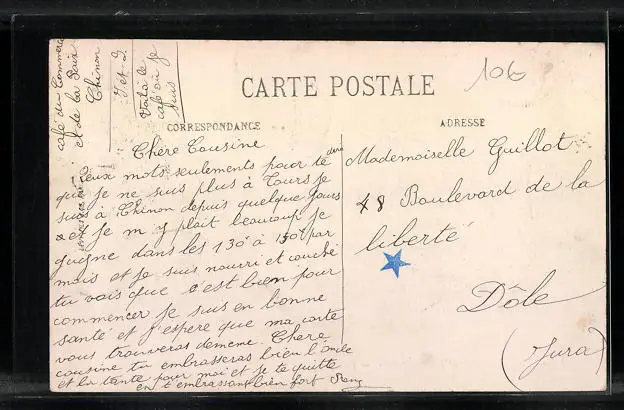 CARTE POSTALE
106
CORRESPONDANCE
ADRESSE
café du Commerce
et de la Paix
Chinon
I et L
Voilà le
café où je
suis
Chère Cousine
Deux mots seulements pour te dire
que je ne suis plus à Tours je
suis à Chinon depuis quelque jours
et je m y plait beaucoup je
gagne dans les 130 à 150 par
mois et je suis nourri et couché
tu vois que c'est bien pour
commencer je suis en bonne
santé et j'espère que ma carte
vous trouveras de meme. Chere
cousine tu embrasseras bien l'oncle
et la tante pour moi et je te quitte
en t'embrassant bien fort
Mademoiselle Guillot
48 Boulevard de la
liberté
Dôle
(Jura)